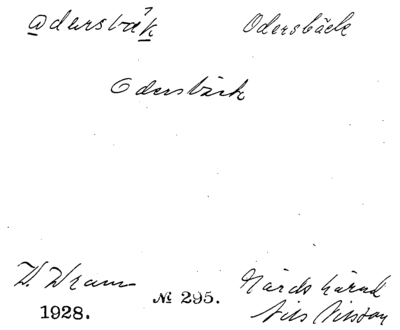 odersbäk Odersbäck
Odersbäck
V. Vram Gärds härad
1928. № 295. Nils Nilsson